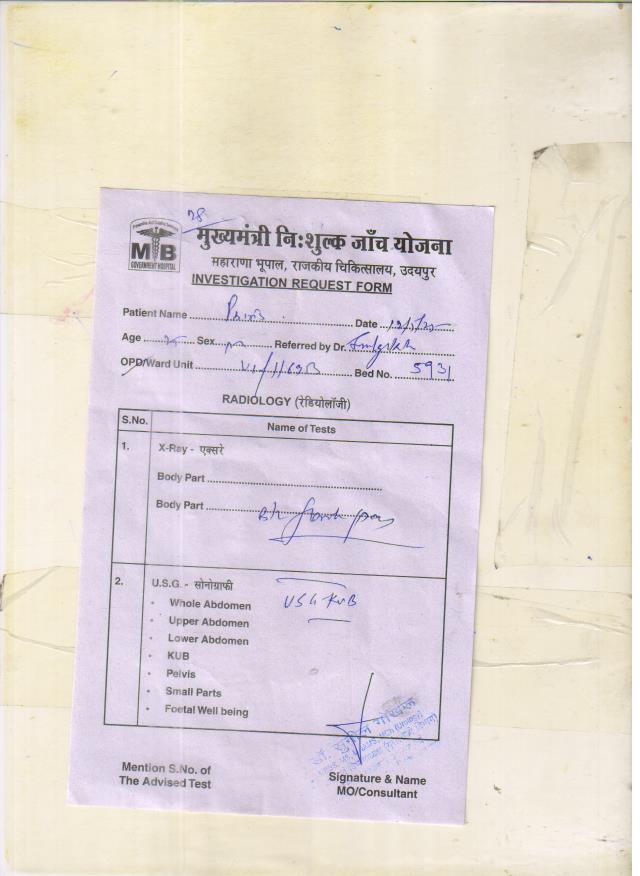 28
MB
GOVERNMENT HOSPITAL
मुख्यमंत्री निःशुल्क जाँच योजना
महाराणा भूपाल, राजकीय चिकित्सालय, उदयपुर
INVESTIGATION REQUEST FORM
Patient Name ........ Date ........
Age ........ Sex ........ Referred by Dr. ........
OPD/Ward Unit ........ Bed No. ........ 5931
RADIOLOGY (रेडियोलॉजी)
S.No. Name of Tests
1. X-Ray - एक्सरे
Body Part ........
Body Part ........
2. U.S.G. - सोनोग्राफी
• Whole Abdomen USG KUB
• Upper Abdomen
• Lower Abdomen
• KUB
• Pelvis
• Small Parts
• Foetal Well being
Mention S.No. of
The Advised Test
Signature & Name
MO/Consultant